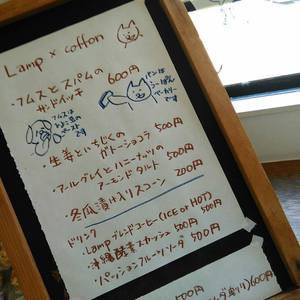 Lamp × cotton
・フムスとスパムの
サンドイッチ 600円
フムスは
ひよこ豆の
ペースト
です
パンは
ベーカリー
です
・生姜といちじくの
ガトーショコラ 500円
・アールグレイとハニーナッツの
アーモンドタルト 500円
・冬瓜漬け入りスコーン 200円
ドリンク
Lamp ブレンドコーヒー(ICE or HOT) 500円
沖縄酵素スカッシュ 500円
・パッションフルーツソーダ 500円
600円